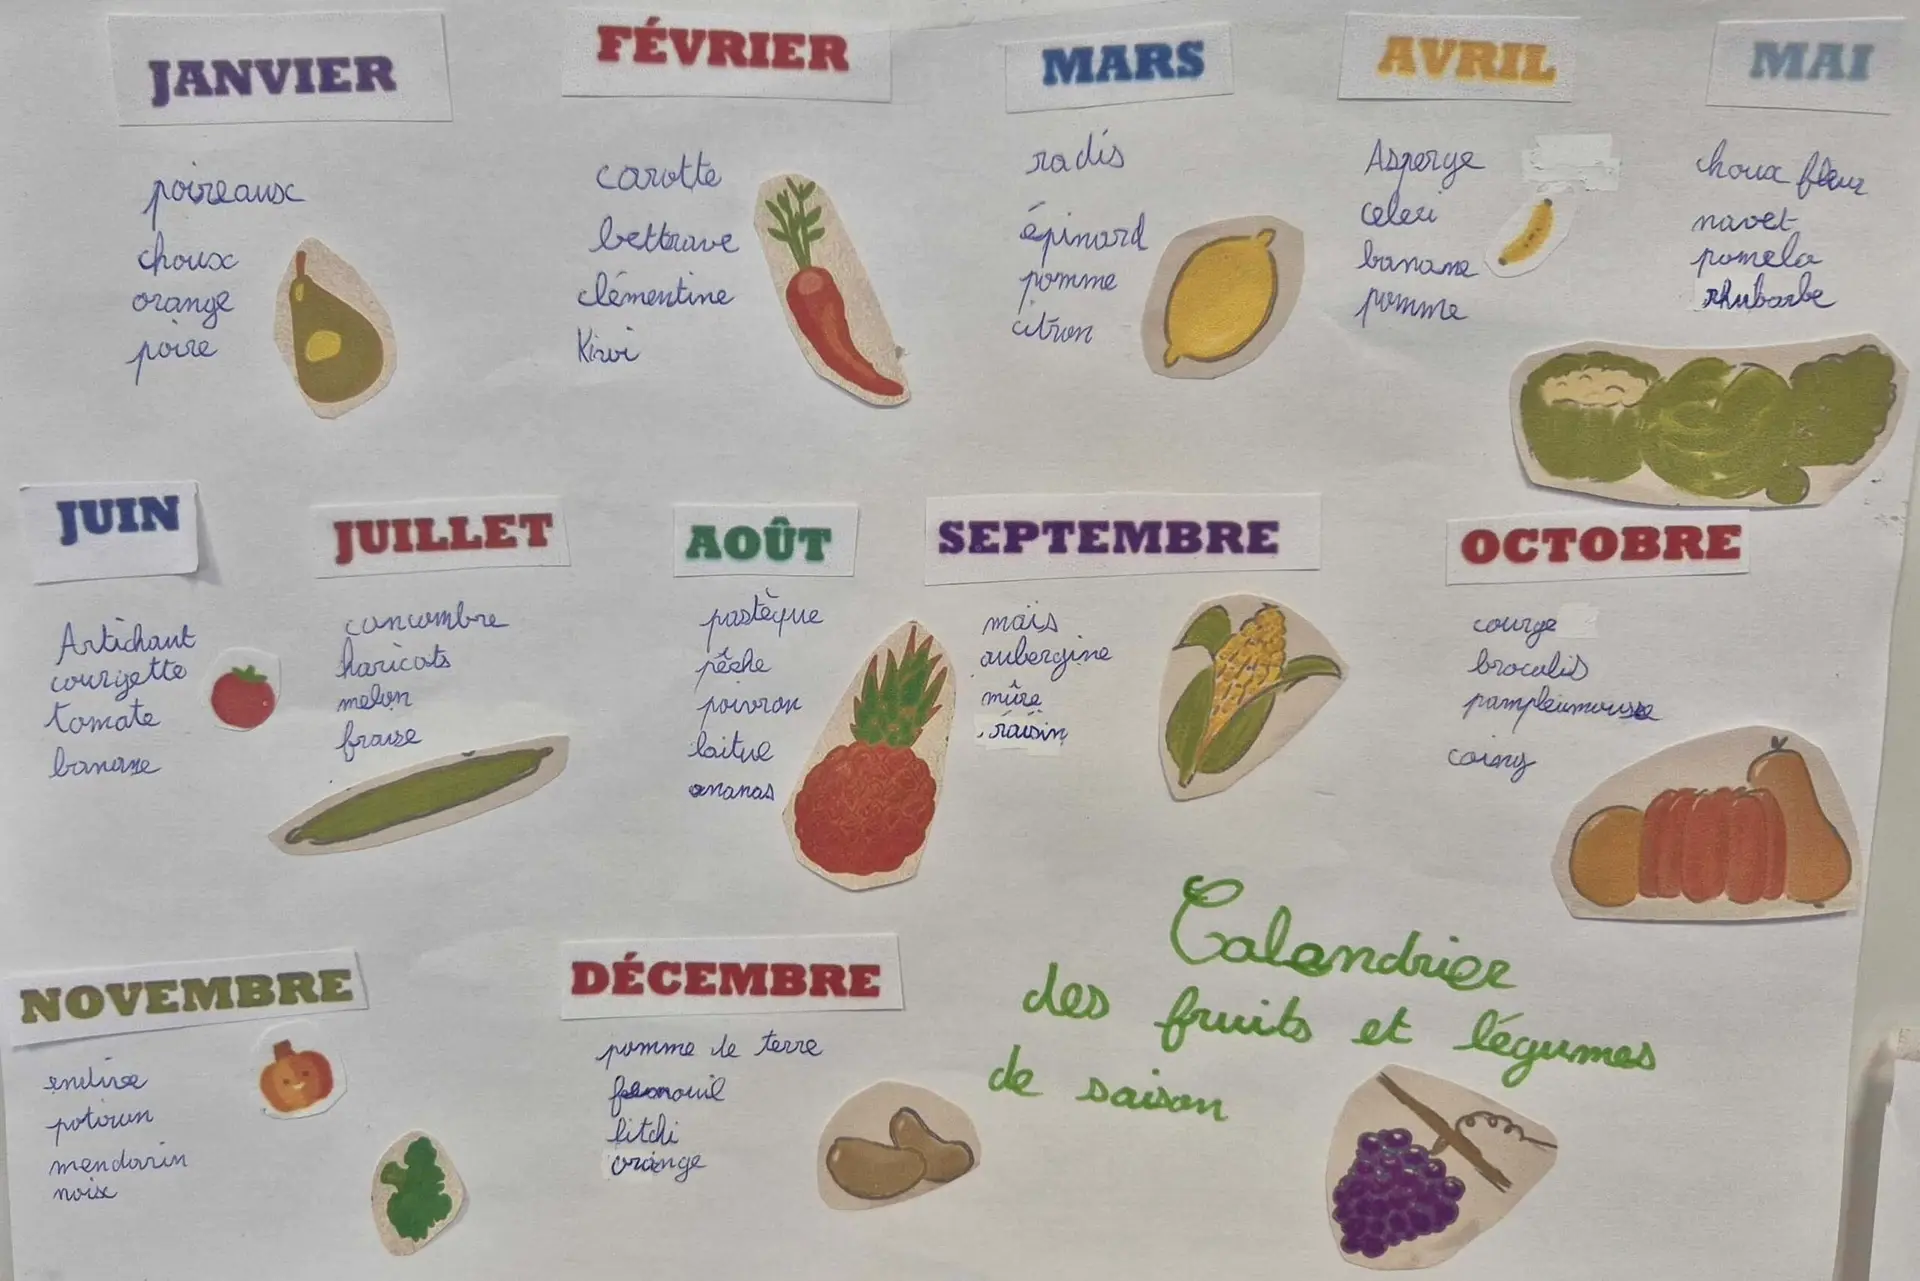 JANVIER
poireaux
choux
orange
poire
FÉVRIER
carotte
bettrave
clémentine
Kiwi
MARS
radis
épinard
pomme
citron
AVRIL
Asperge
celeri
banane
pomme
MAI
choux fleur
navet
pomelo
rhubarbe
JUIN
Artichaut
courgette
tomate
banane
JUILLET
concombre
haricots
melon
fraise
AOÛT
pastèque
pêche
poivron
laitue
ananas
SEPTEMBRE
maïs
aubergine
mûre
raisin
OCTOBRE
courge
brocolis
pampleumousse
coing
NOVEMBRE
endive
potiron
mendarin
noix
DÉCEMBRE
pomme de terre
fenouil
litchi
orange
Calendrier
des fruits et légumes
de saison